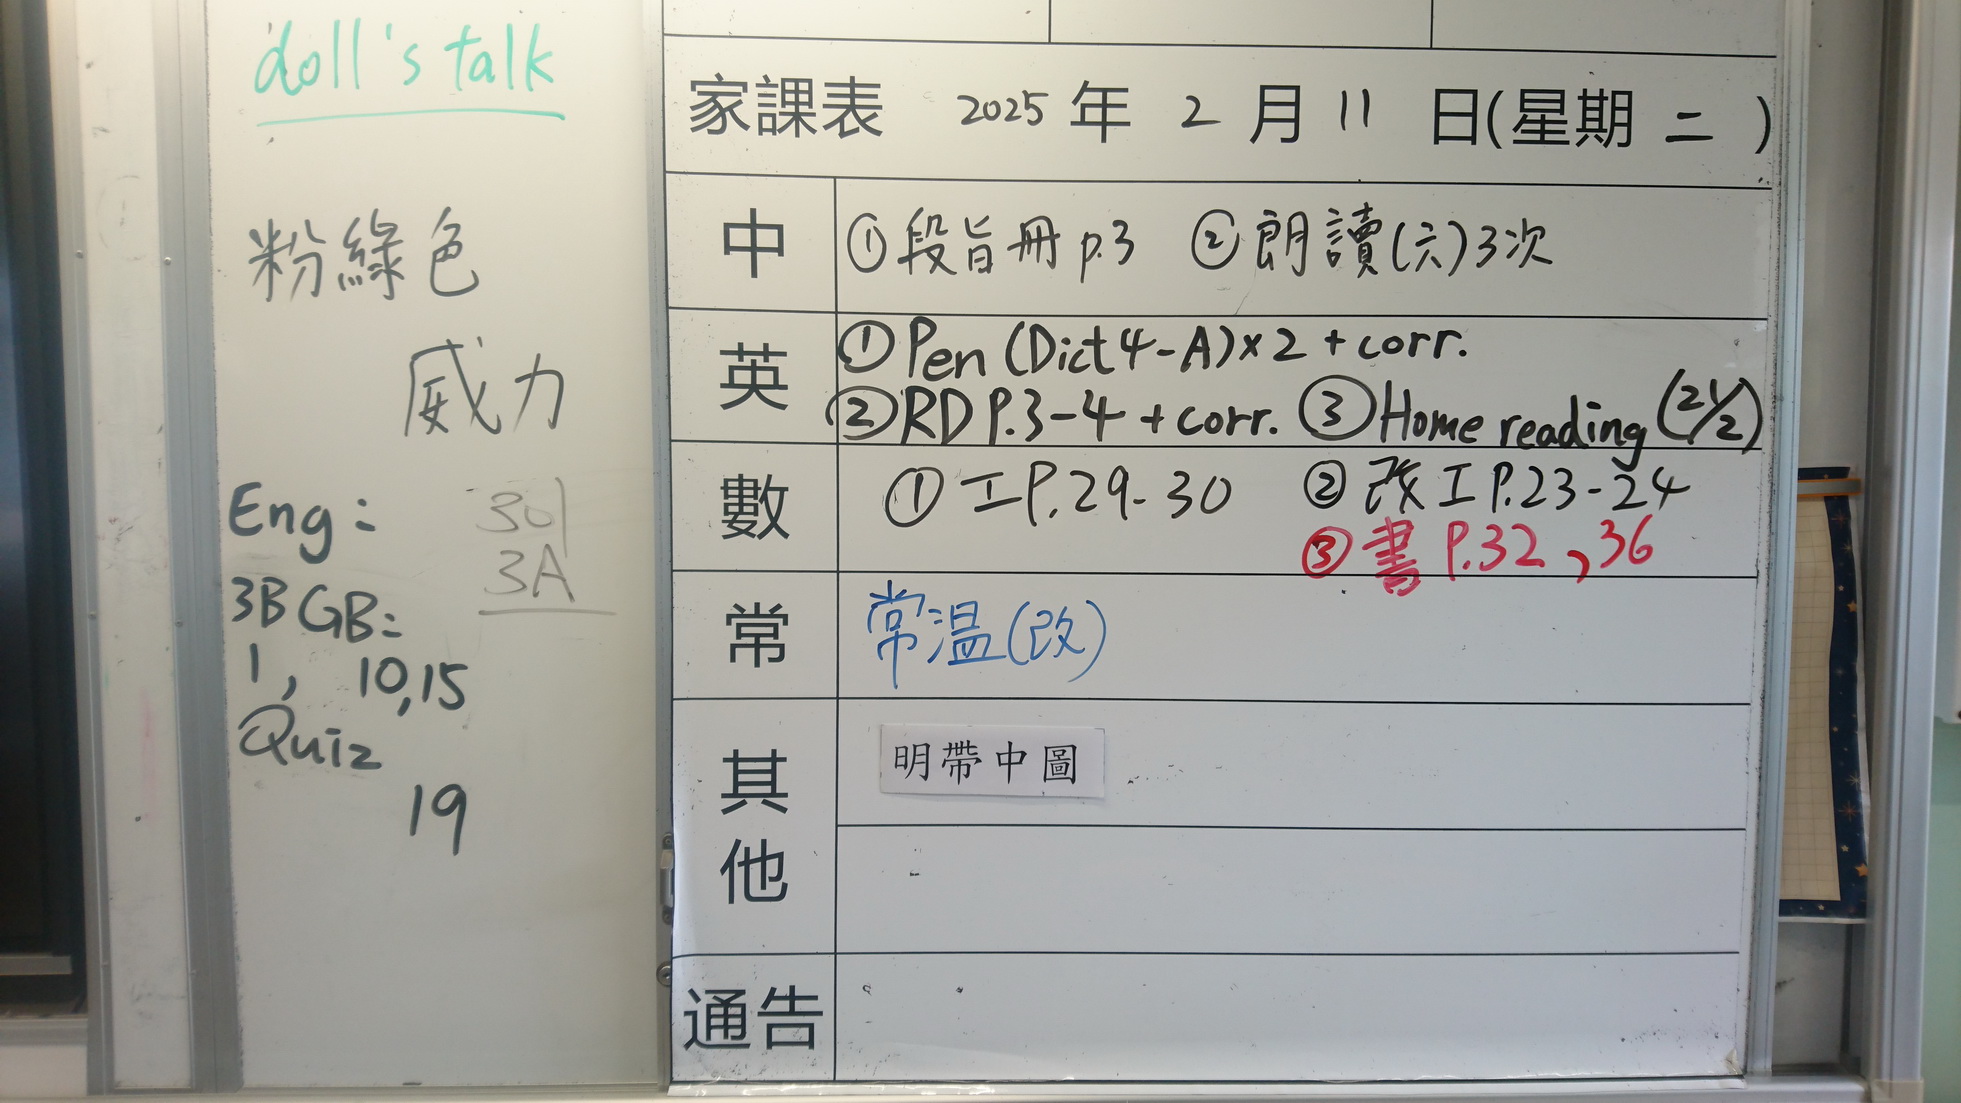 doll's talk
粉綠色
威力
Eng:
301
3A
3B GB:
1, 10,15
Quiz
19
家課表 2025 年 2 月 11 日(星期 二 )
中
①段旨冊 p.3 ②朗讀(六)3次
英
①Pen (Dict 4-A)×2 + corr.
②RD P.3-4 + corr. ③Home reading (21/2)
數
①工P.29-30 ②改工P.23-24
③書 P.32,36
常
常溫(改)
其他
明帶中圖
通告